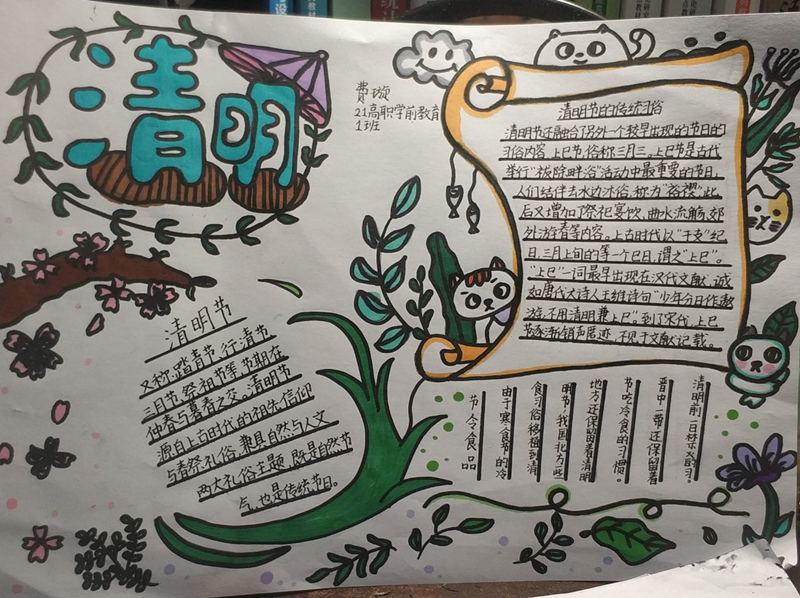 清明
费璇
21高职学前教育
1班
清明节的传统习俗
清明节还融合了另外一个较早出现的节日的
习俗内容。上巳节,俗称三月三。上巳节是古代
举行"祓除畔浴"活动中最重要的节日,
人们结伴去水边沐浴,称为"祓禊",此
后又增加了祭祀宴饮、曲水流觞、郊
外游春等内容。上古时代以"干支"纪
日,三月上旬的第一个巳日,谓之"上巳"。
"上巳"一词最早出现在汉代文献,诚
如唐代大诗人王维诗句"少年分日作遨
游,不用清明兼上巳"。到了宋代,上巳
节逐渐销声居迹,不现于文献记载。
清明节
又称:踏青节、行清节、
三月节、祭祖节等,节期在
仲春与暮春之交。清明节
源自上古时代的祖先信仰
与春祭礼俗,兼具自然与人文
两大礼俗主题,既是自然节
气,也是传统节日。
清明前一日禁火的习。
晋中一带还保留着
节吃冷食的习惯。
地方还保留着清明
明节,我国北方一些
食习俗移植到清
由于寒食节的冷
节令食品